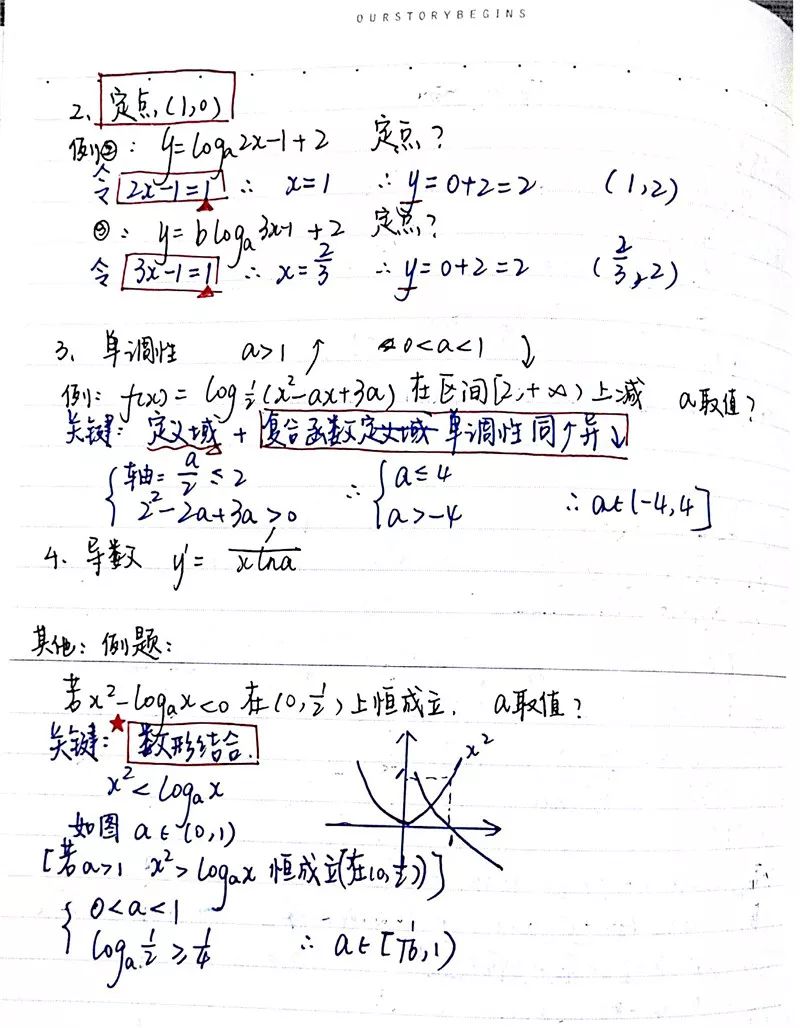 OURSTORYBEGINS
2、定点(1,0)
例②: y=logₐ2x-1+2 定点?
令 2x-1=1 ∴ x=1 ∴ y=0+2=2 (1,2)
③: y=blogₐ3x-1+2 定点?
令 3x-1=1 ∴ x=2/3 ∴ y=0+2=2 (2/3,2)
3、单调性 a>1 ↑ 0<a<1 ↓
例: f(x)=log½(x²-ax+3a) 在区间[2,+∞)上减 a取值?
关键: 定义域+复合函数定义域 单调性同↑异↓
{轴=a/2≤2 ∴ {a≤4
{2²-2a+3a>0 {a>-4 ∴ a∈(-4,4]
4、导数 y'=1/xlna
其他: 例题:
若x²-logₐx<0 在(0,1/2)上恒成立. a取值?
关键: ★数形结合.
x²<logₐx x²
如图 a∈(0,1) 1 1
[若a>1 x²>logₐx 恒成立(在(0,1/2))]
{0<a<1
{logₐ1/2≥1/4 ∴ a∈[1/16,1)